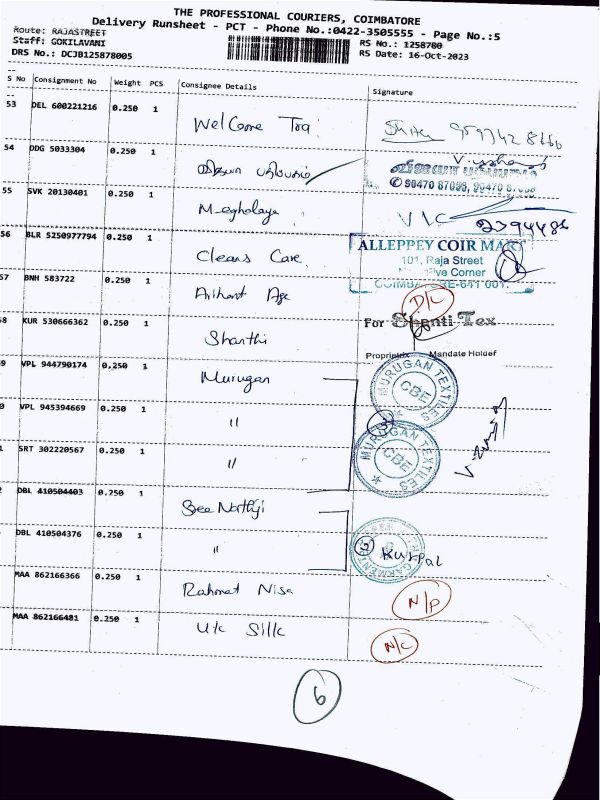 THE PROFESSIONAL COURIERS, COIMBATORE
Delivery Runsheet - PCT - Phone No.:0422-3505555 - Page No.:5
Route: RAJASTREET
Staff: GOKILAVANI
DRS No.: DCJB125878005
RS No.: 1258780
RS Date: 16-Oct-2023
S No Consignment No Weight PCS Consignee Details Signature
53 DEL 600221216 0.250 1 Welcome
54 DDG 5033304 0.250 1
© 90470 87093
55 SVK 20130401 0.250 1 Meghalaya
56 BLR 5250977794 0.250 1 Cleans Care
ALLEPPEY COIR MART
101, Raja Street
Five Corner
COIMBATORE-641 001.
57 BNH 583722 0.250 1 Arihant Age D/L
58 KUR 530666362 0.250 1 Shanthi
For Shanti Tex
Mandate Holder
9 VPL 944790174 0.250 1 Murugan
MURUGAN TEXTILES
CBE
0 VPL 945394669 0.250 1 "
MURUGAN TEXTILES
CBE
1 SRT 302220567 0.250 1 "
2 DBL 410504403 0.250 1 Sree Nathji
DBL 410504376 0.250 1 "
MAA 862166366 0.250 1 Rahmat Nisa N/P
MAA 862166481 0.250 1 Silk N/C
6